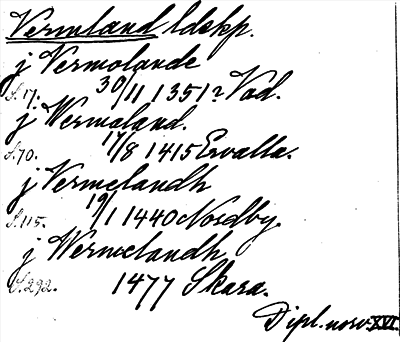 Vermland ldskp.
j Vermolande
S. 17. 30/11 1351? Vad.
j Wermaland.
S. 70. 17/8 1415 Ervalla.
j Vermelandh
S. 115. 19/1 1440 Nordby.
j Wermelandh
S. 292. 1477 Skara.
Dipl. norv. XVI.